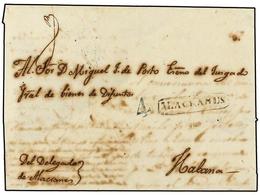 Al Sor. D. Miguel J. de Porto Esno. del Juzgado
Gral de bienes de Difuntos
4 ALACRANES
Del Delegado
de Alacranes
Habana